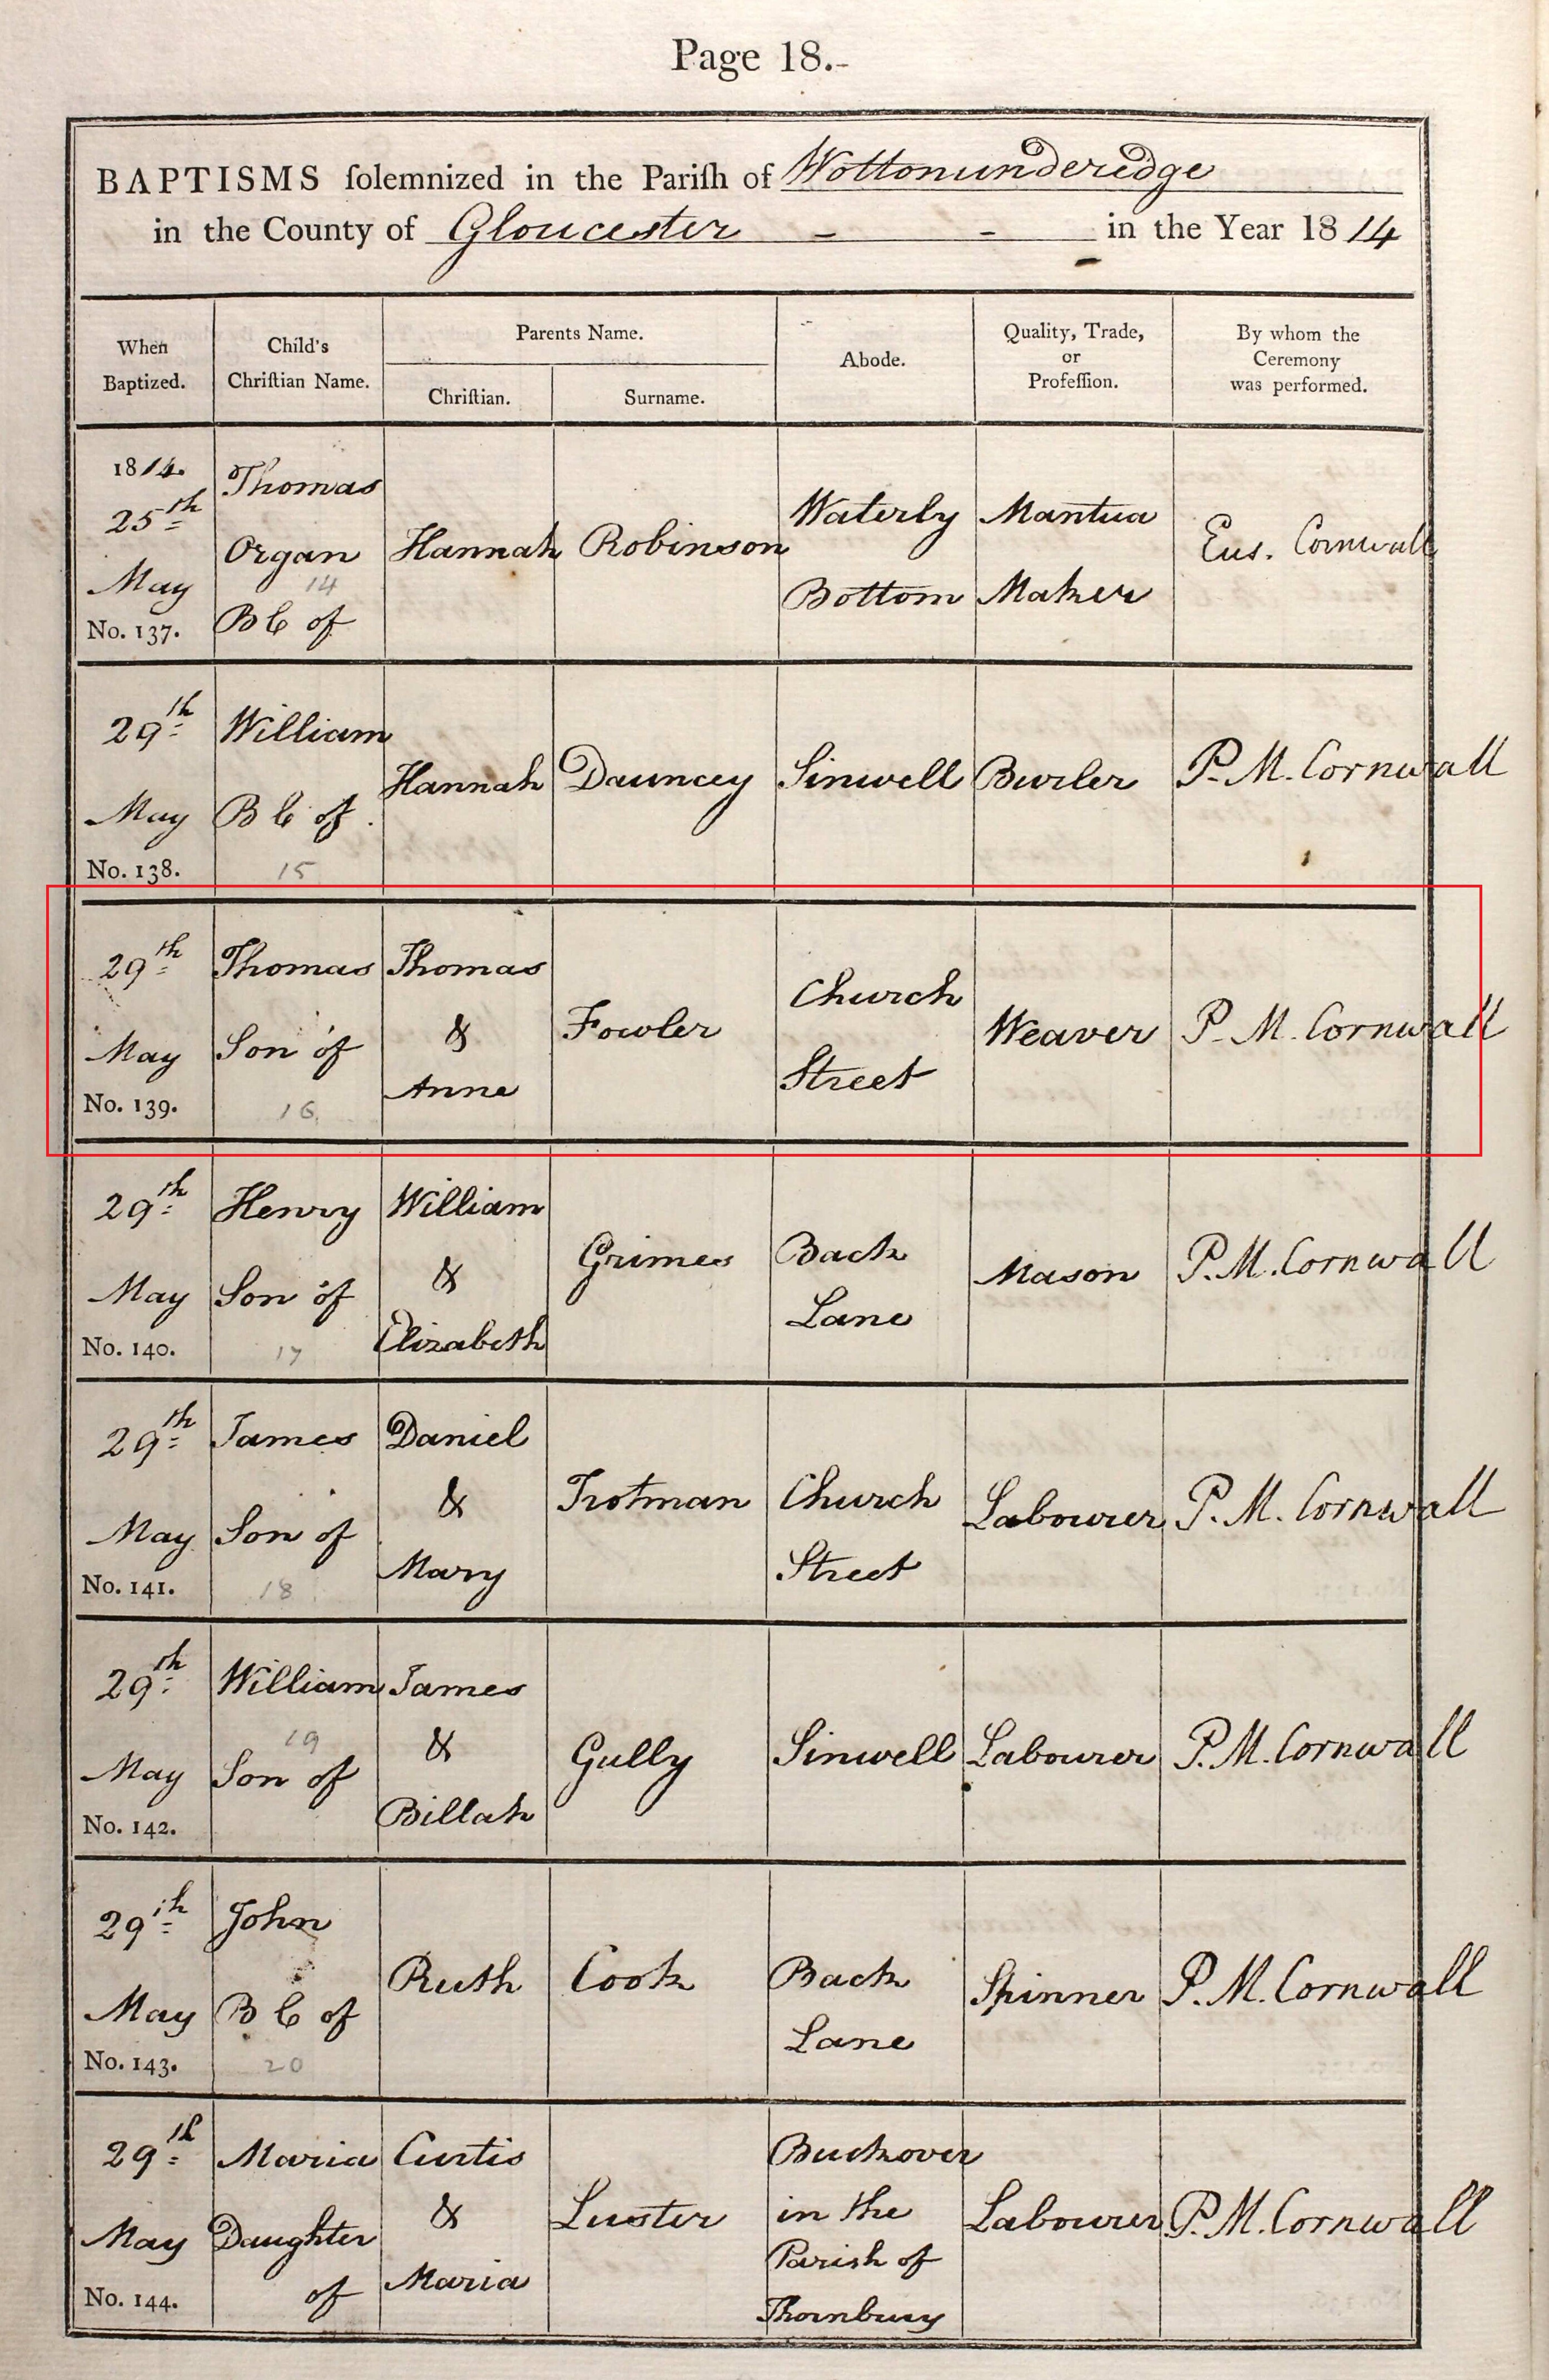 Page 18.-
BAPTISMS ſolemnized in the Pariſh of Wottonunderedge
in the County of Gloucester - - in the Year 1814
When Baptized.
Child's Chriſtian Name.
Parents Name.
Chriſtian.
Surname.
Abode.
Quality, Trade, or Profeſſion.
By whom the Ceremony was performed.
1814.
25th
May
No. 137.
Thomas
Organ
14
B C of
Hannah
Robinson
Waterly
Bottom
Mantua
Maker
Eus. Cornwall
29th
May
No. 138.
William
B C of
15
Hannah
Dauncey
Sinwell
Burler
P. M. Cornwall
29th
May
No. 139.
Thomas
Son of
16
Thomas
&
Anne
Fowler
Church
Street
Weaver
P. M. Cornwall
29th
May
No. 140.
Henry
Son of
17
William
&
Elizabeth
Grimes
Back
Lane
Mason
P. M. Cornwall
29th
May
No. 141.
James
Son of
18
Daniel
&
Mary
Trotman
Church
Street
Labourer
P. M. Cornwall
29th
May
No. 142.
William
19
Son of
James
&
Billah
Gully
Sinwell
Labourer
P. M. Cornwall
29th
May
No. 143.
John
B C of
20
Ruth
Cook
Back
Lane
Spinner
P. M. Cornwall
29th
May
No. 144.
Maria
Daughter
of
Curtis
&
Maria
Luster
Buckover
in the
Parish of
Thornbury
Labourer
P. M. Cornwall